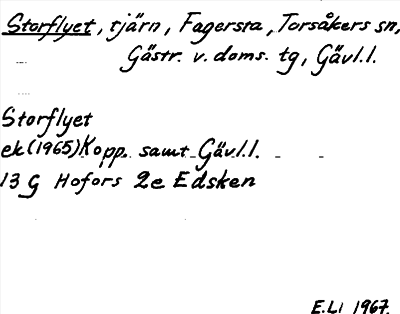 Storflyet, tjärn, Fagersta, Torsåkers sn,
Gästr. v. doms. tg, Gävl.l.
Storflyet
ek(1965)Kopp. samt Gävl.l.
13 G Hofors 2e Edsken
E.Li 1967.